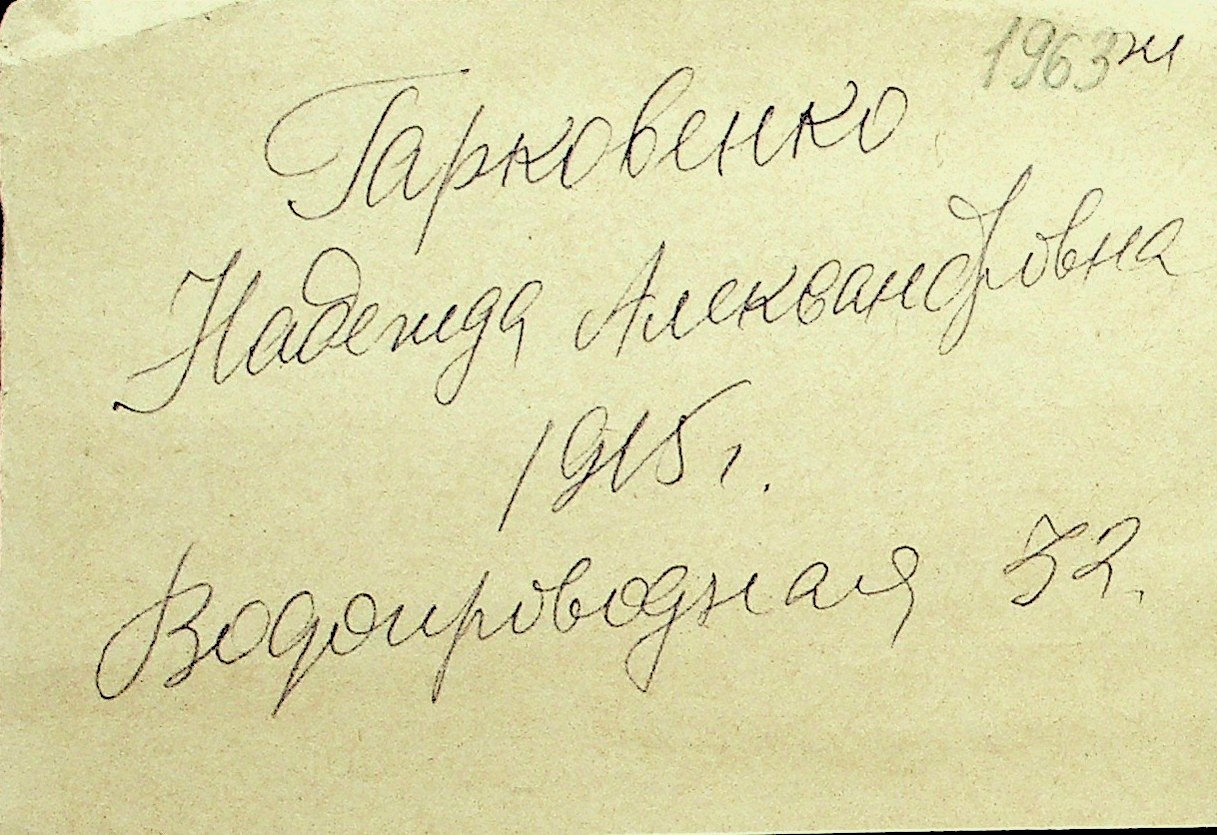 1963 ж
Гарковенко
Надежда Александровна
1915 г.
Водопроводная 32.